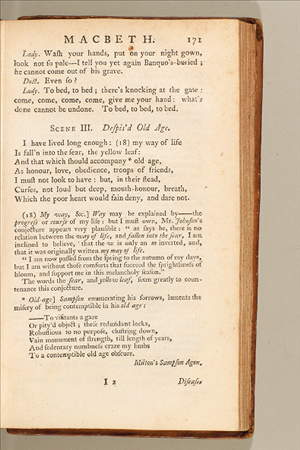 MACBETH. 171
Lady. Waſh your hands, put on your night gown,
look not ſo pale—I tell you yet again Banquo's buried;
he cannot come out of his grave.
Doct. Even ſo?
Lady. To bed, to bed; there's knocking at the gate:
come, come, come, come, give me your hand: what's
done cannot be undone. To bed, to bed, to bed.
SCENE III. Deſpis'd Old Age.
I have lived long enough: (18) my way of life
Is fall'n into the ſear, the yellow leaf:
And that which ſhould accompany * old age,
As honour, love, obedience, troops of friends,
I muſt not look to have: but, in their ſtead,
Curſes, not loud but deep, mouth-honour, breath,
Which the poor heart would fain deny, and dare not.
(18) My way, &c.] Way may be explained by—the
progreſs or courſe of my life: but I muſt own, Mr. Johnſon's
conjecture appears very plauſible: "as ſays he, there is no
relation between the way of life, and fallen into the ſear, I am
inclined to believe, that the w is only an m inverted, and,
that it was originally written my may of life,
"I am now paſſed from the ſpring to the autumn of my days,
but I am without thoſe comforts that ſucceed the ſprightlineſs of
bloom, and ſupport me in this melancholy ſeaſon."
The words the ſear, and yellow leaf, ſeem greatly to coun-
tenance this conjecture.
* Old-age] Sampſon enumerating his ſorrows, laments the
miſery of being contemptible in his old age;
—To viſitants a gaze
Or pity'd object; theſe redundant locks,
Robuſtious to no purpoſe, cluſtring down,
Vain monument of ſtrength, till length of years,
And ſedentary numbneſs craze my limbs
To a contemptible old age obſcure.
Milton's Sampſon Agon.
I 2 Diſeaſe